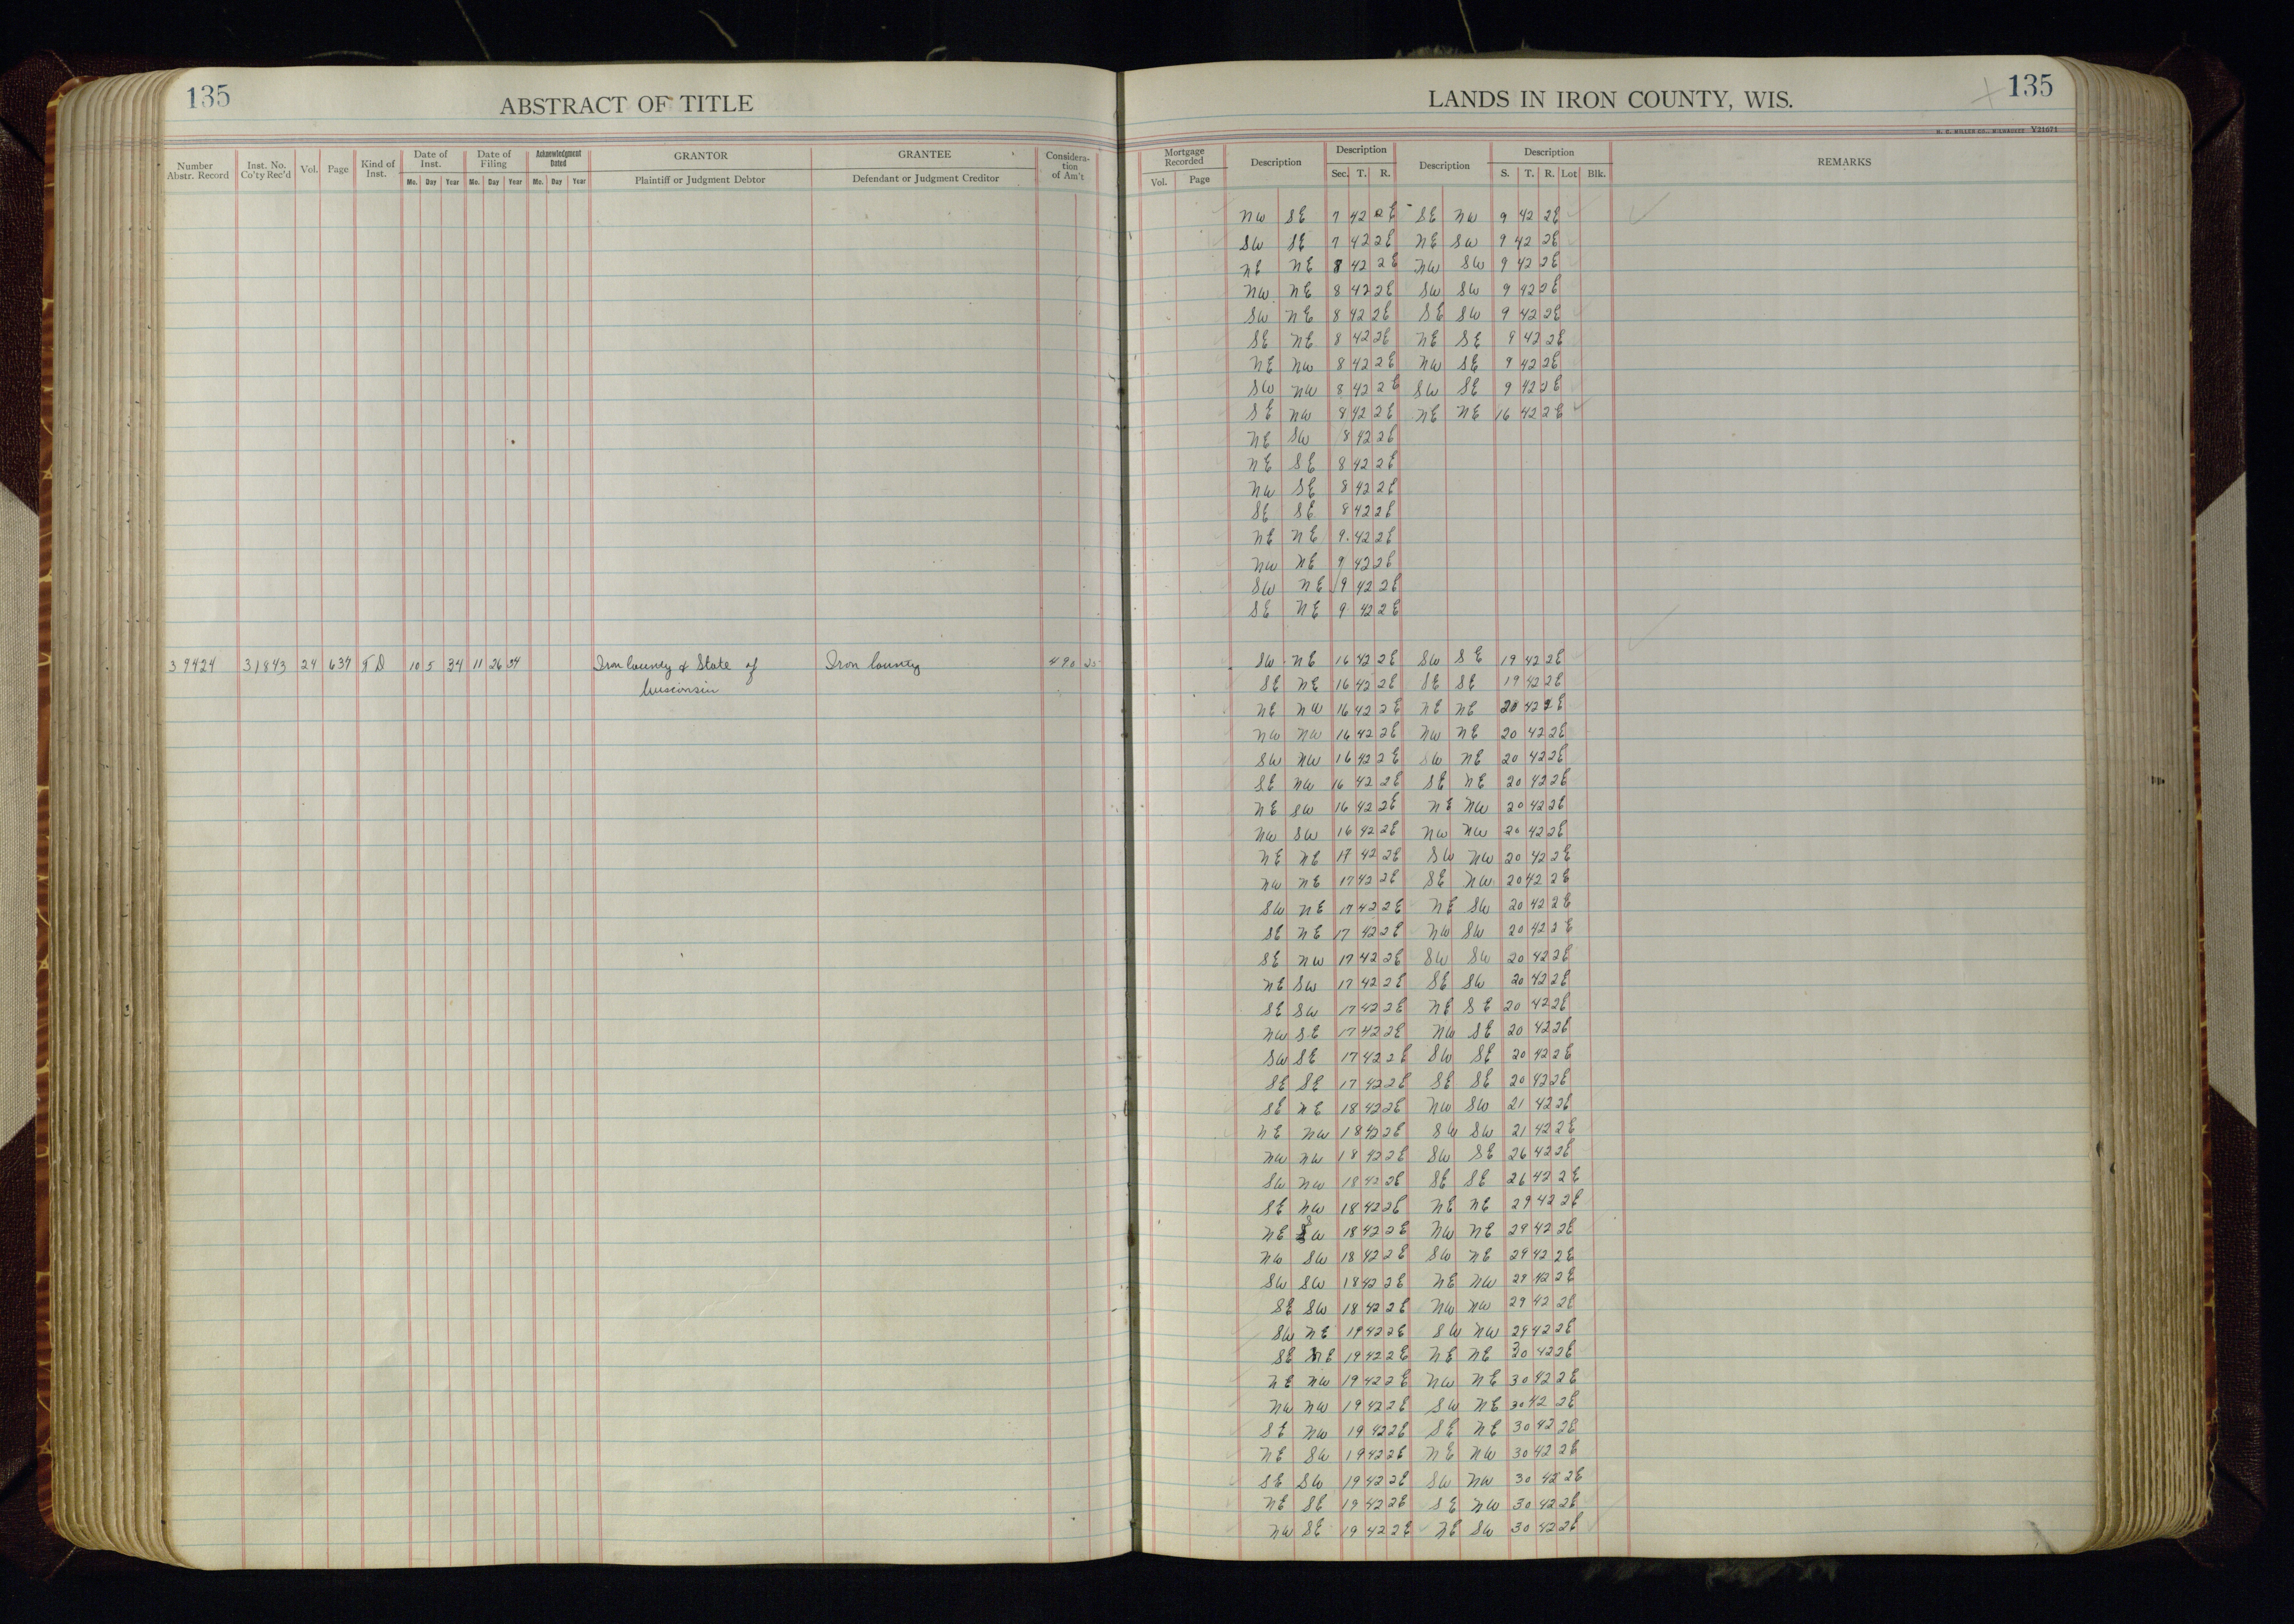 135
ABSTRACT OF TITLE
LANDS IN IRON COUNTY, WIS.
135
H. C. MILLER CO., MILWAUKEE V21671
Number Abstr. Record | Inst. No. Co'ty Rec'd | Vol. | Page | Kind of Inst. | Date of Inst. | Date of Filing | Acknowledgment Dated | GRANTOR | GRANTEE | Considera-tion of Am't | Mortgage Recorded | Description | Description | Description | Description | REMARKS
Mo. Day Year | Mo. Day Year | Mo. Day Year | Plaintiff or Judgment Debtor | Defendant or Judgment Creditor | Vol. Page | Sec. T. R. | S. T. R. Lot Blk.
NW SE 7 42 2E SE NW 9 42 2E
SW SE 7 42 2E NE SW 9 42 2E
NE NE 8 42 2E NW SW 9 42 2E
NW NE 8 42 2E SW SW 9 42 2E
SW NE 8 42 2E SE SW 9 42 2E
SE NE 8 42 2E NE SE 9 42 2E
NE NW 8 42 2E NW SE 9 42 2E
SW NW 8 42 2E SW SE 9 42 2E
SE NW 8 42 2E NE NE 16 42 2E
NE SW 8 42 2E
NE SE 8 42 2E
NW SE 8 42 2E
SE SE 8 42 2E
NE NE 9 42 2E
NW NE 9 42 2E
SW NE 9 42 2E
SE NE 9 42 2E
39424 31843 24 634 TD 10 5 34 11 26 34 Iron County & State of Iron County 490 SW NE 16 42 2E SW SE 19 42 2E
Wisconsin SE NE 16 42 2E SE SE 19 42 2E
NE NW 16 42 2E NE NE 20 42 2E
NW NW 16 42 2E NW NE 20 42 2E
SW NW 16 42 2E SW NE 20 42 2E
SE NW 16 42 2E SE NE 20 42 2E
NE SW 16 42 2E NE NW 20 42 2E
NW SW 16 42 2E NW NW 20 42 2E
NE NE 17 42 2E SW NW 20 42 2E
NW NE 17 42 2E SE NW 20 42 2E
SW NE 17 42 2E NE SW 20 42 2E
SE NE 17 42 2E NW SW 20 42 2E
SE NW 17 42 2E SW SW 20 42 2E
NE SW 17 42 2E SE SW 20 42 2E
SE SW 17 42 2E NE SE 20 42 2E
NW SE 17 42 2E NW SE 20 42 2E
SW SE 17 42 2E SW SE 20 42 2E
SE SE 17 42 2E SE SE 20 42 2E
SE NE 18 42 2E NW SW 21 42 2E
NE NW 18 42 2E SW SW 21 42 2E
NW NW 18 42 2E SW SE 26 42 2E
SW NW 18 42 2E SE SE 26 42 2E
SE NW 18 42 2E NE NE 29 42 2E
NE SW 18 42 2E NW NE 29 42 2E
NW SW 18 42 2E SW NE 29 42 2E
SW SW 18 42 2E NE NW 29 42 2E
SE SW 18 42 2E NW NW 29 42 2E
SW NE 19 42 2E SW NW 29 42 2E
SE NE 19 42 2E NE NE 30 42 2E
NE NW 19 42 2E NW NE 30 42 2E
NW NW 19 42 2E SW NE 30 42 2E
SE NW 19 42 2E SE NE 30 42 2E
NE SW 19 42 2E NE NW 30 42 2E
SE SW 19 42 2E SW NW 30 42 2E
NE SE 19 42 2E SE NW 30 42 2E
NW SE 19 42 2E NE SW 30 42 2E